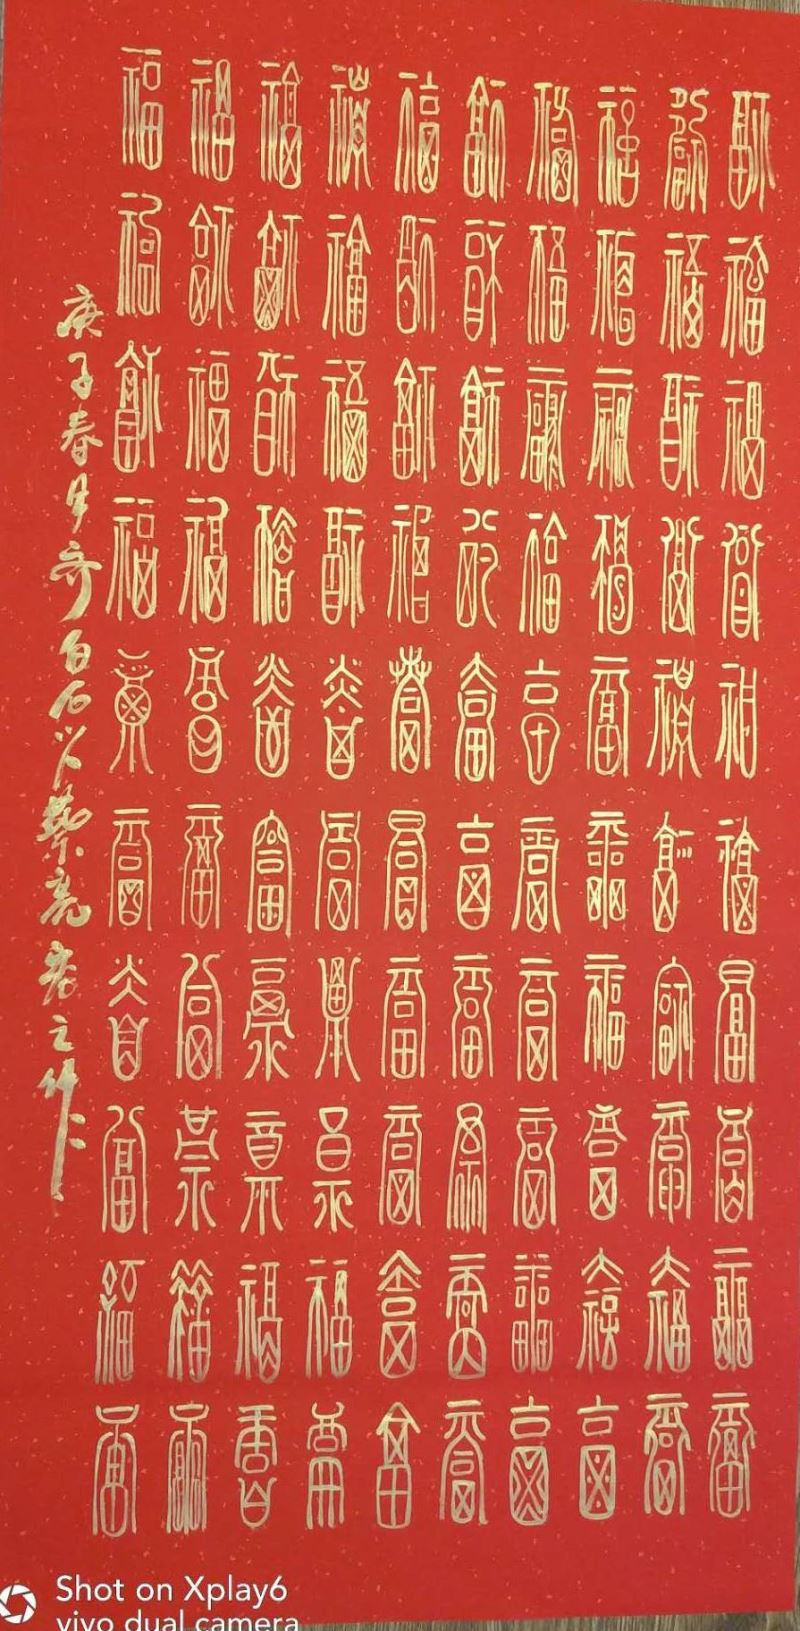 福福福福福福福福福福
福福福福福福福福福福
福福福福福福福福福福
福福福福福福福福福福
福福福福福福福福福福
福福福福福福福福福福
福福福福福福福福福福
福福福福福福福福福福
福福福福福福福福福福
福福福福福福福福福福
庚子春月齐白石之作
Shot on Xplay6
vivo dual camera